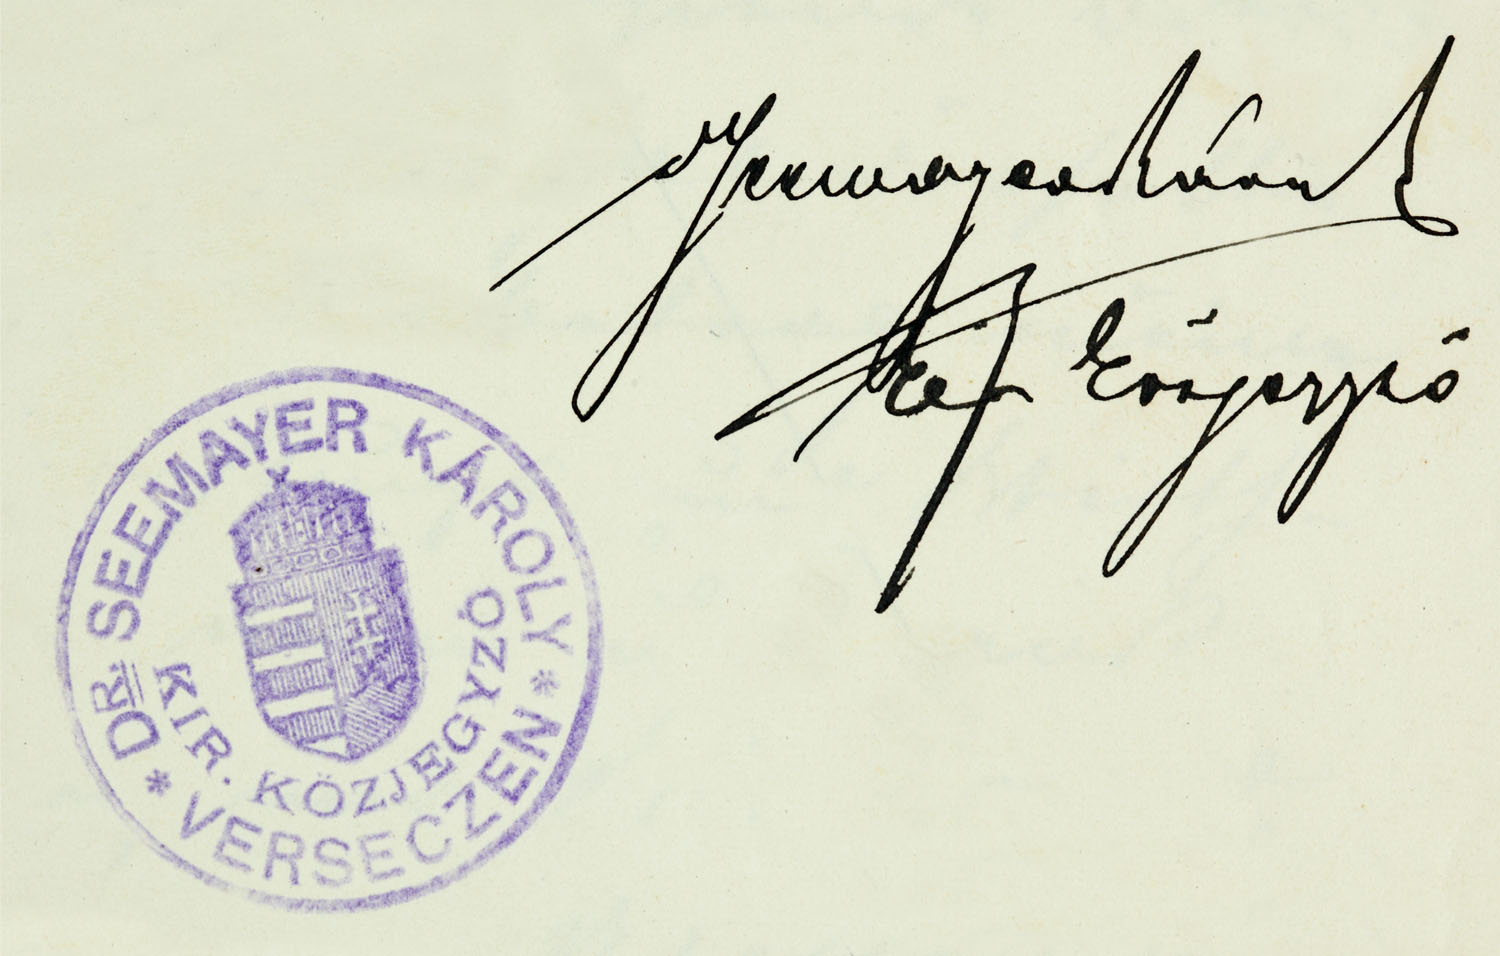 Seemayer Károly
kir közjegyző
DR. SEEMAYER KÁROLY
* VERSECZEN *
KIR. KÖZJEGYZŐ